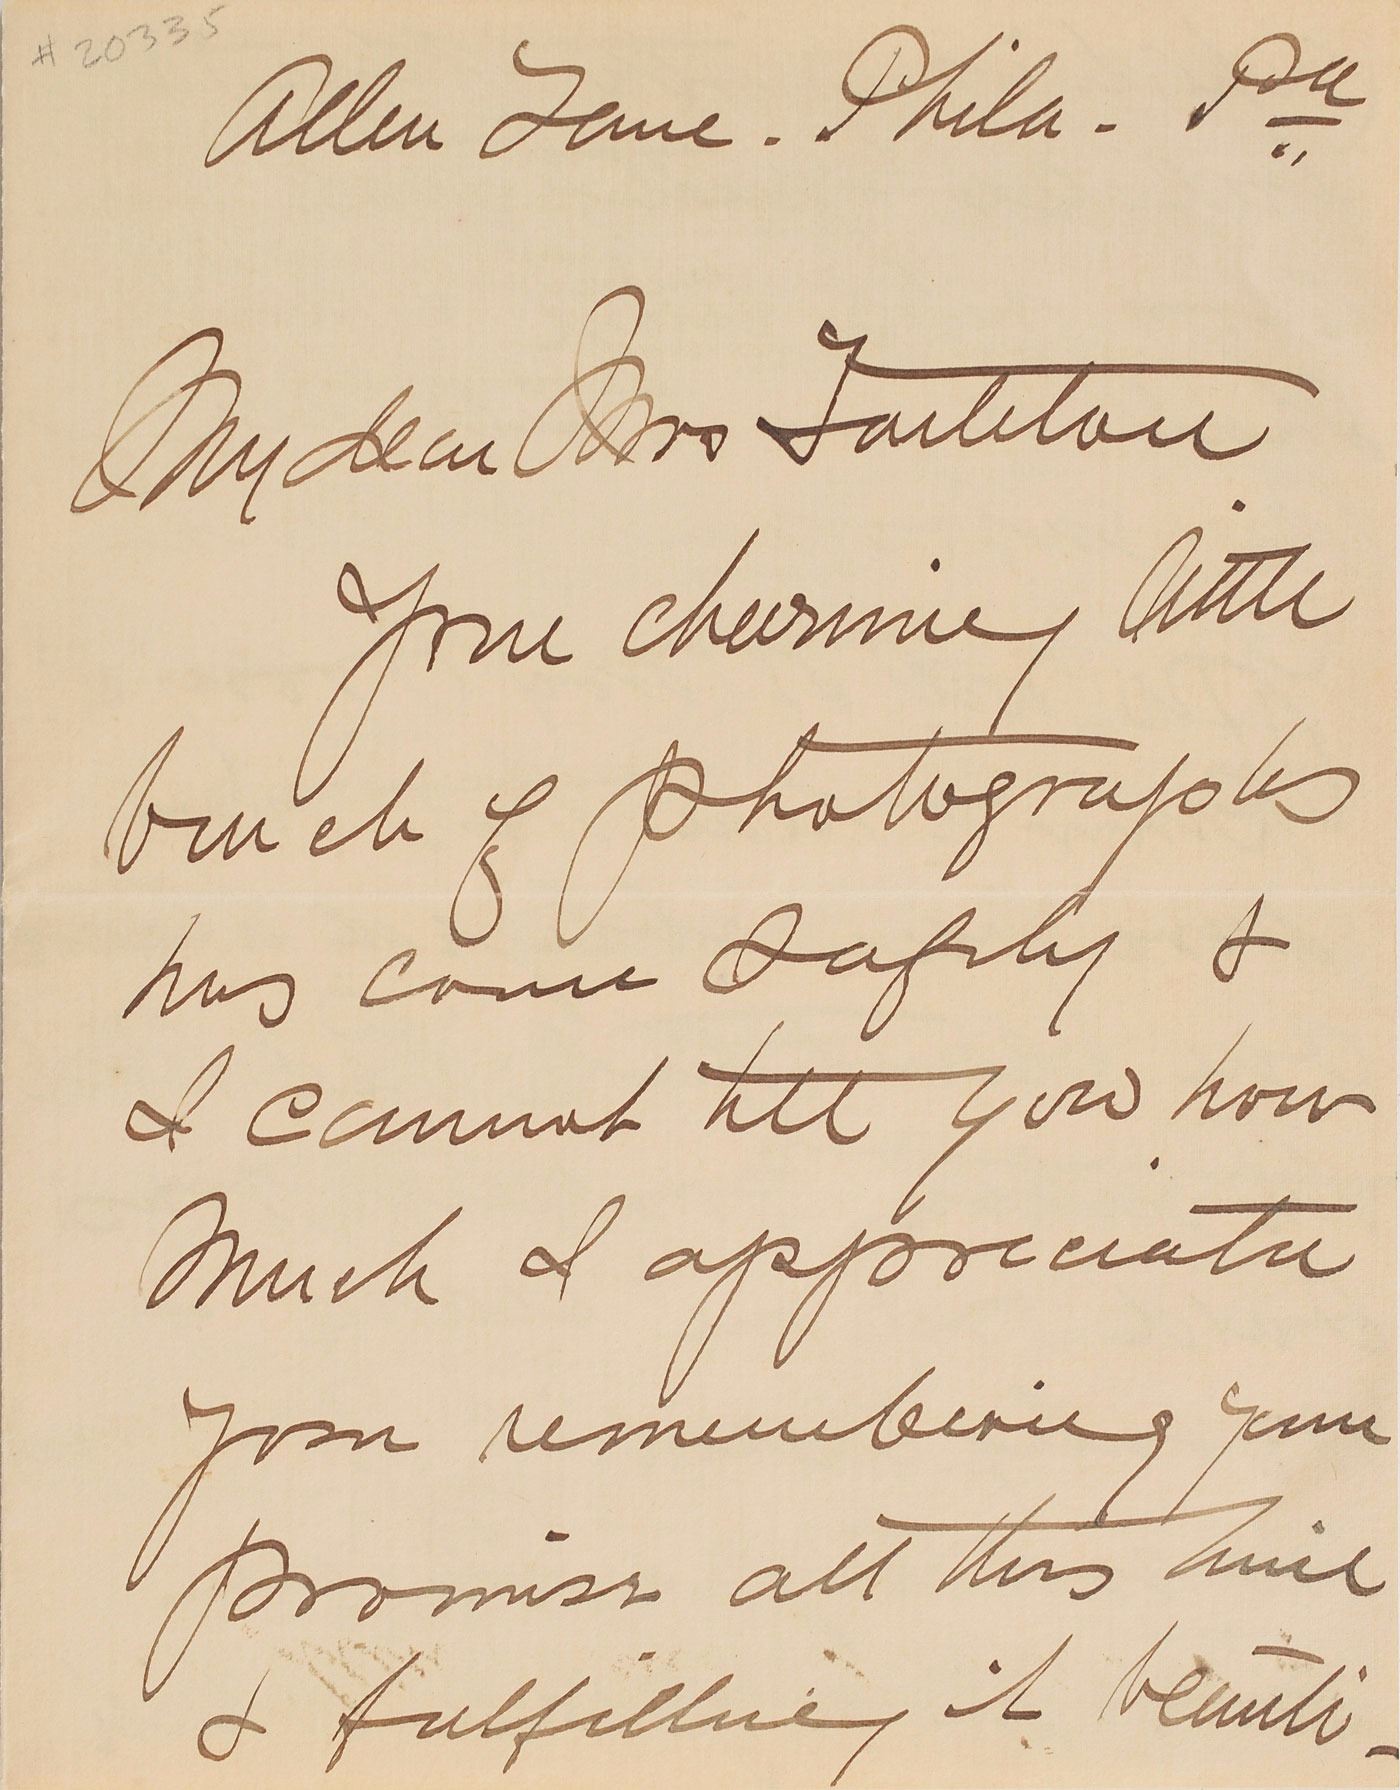 #20335
Allen Lane. Phila. Pa
My dear Mrs Tarleton
Your charming little
bunch of photographs
has come safely &
I cannot tell you how
much I appreciate
your remembering your
promise all this time
& fulfilling it beauti-